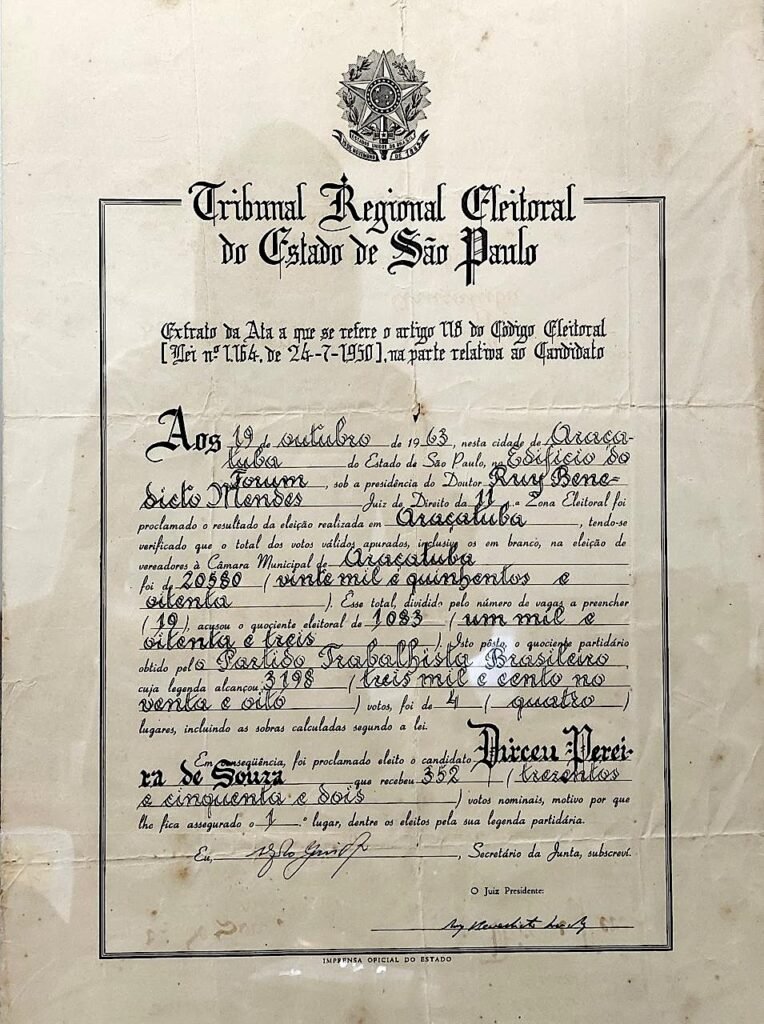 ESTADOS UNIDOS DO BRASIL
15 DE NOVEMBRO DE 1889
Tribunal Regional Eleitoral
do Estado de São Paulo
Extrato da Ata a que se refere o artigo 118 do Código Eleitoral
[Lei nº 1.164, de 24-7-1950], na parte relativa ao Candidato
Aos 19 de outubro de 1963, nesta cidade de Araça-
tuba do Estado de São Paulo, no Edifício do
Forum, sob a presidência do Doutor Ruy Bene-
dicto Mendes Juiz de Direito da 11.ª Zona Eleitoral foi
proclamado o resultado da eleição realizada em Araçatuba, tendo-se
verificado que o total dos votos válidos apurados, inclusive os em branco, na eleição de
vereadores à Câmara Municipal de Araçatuba
foi de 20580 (vinte mil e quinhentos e
oitenta). Esse total, dividido pelo número de vagas a preencher
(19), acusou o quociente eleitoral de 1083 (um mil e
oitenta e treis). Isto pôsto, o quociente partidário
obtido pelo Partido Trabalhista Brasileiro,
cuja legenda alcançou 3198 (treis mil e cento no
venta e oito) votos, foi de 4 (quatro)
lugares, incluindo as sobras calculadas segundo a lei.
Em conseqüência, foi proclamado eleito o candidato Dirceu Perei-
ra de Souza que recebeu 352 (trezentos
e cinquenta e dois) votos nominais, motivo por que
lhe fica assegurado o 1.º lugar, dentre os eleitos pela sua legenda partidária.
Eu, , Secretário da Junta, subscreví.
O Juiz Presidente:
IMPRENSA OFICIAL DO ESTADO